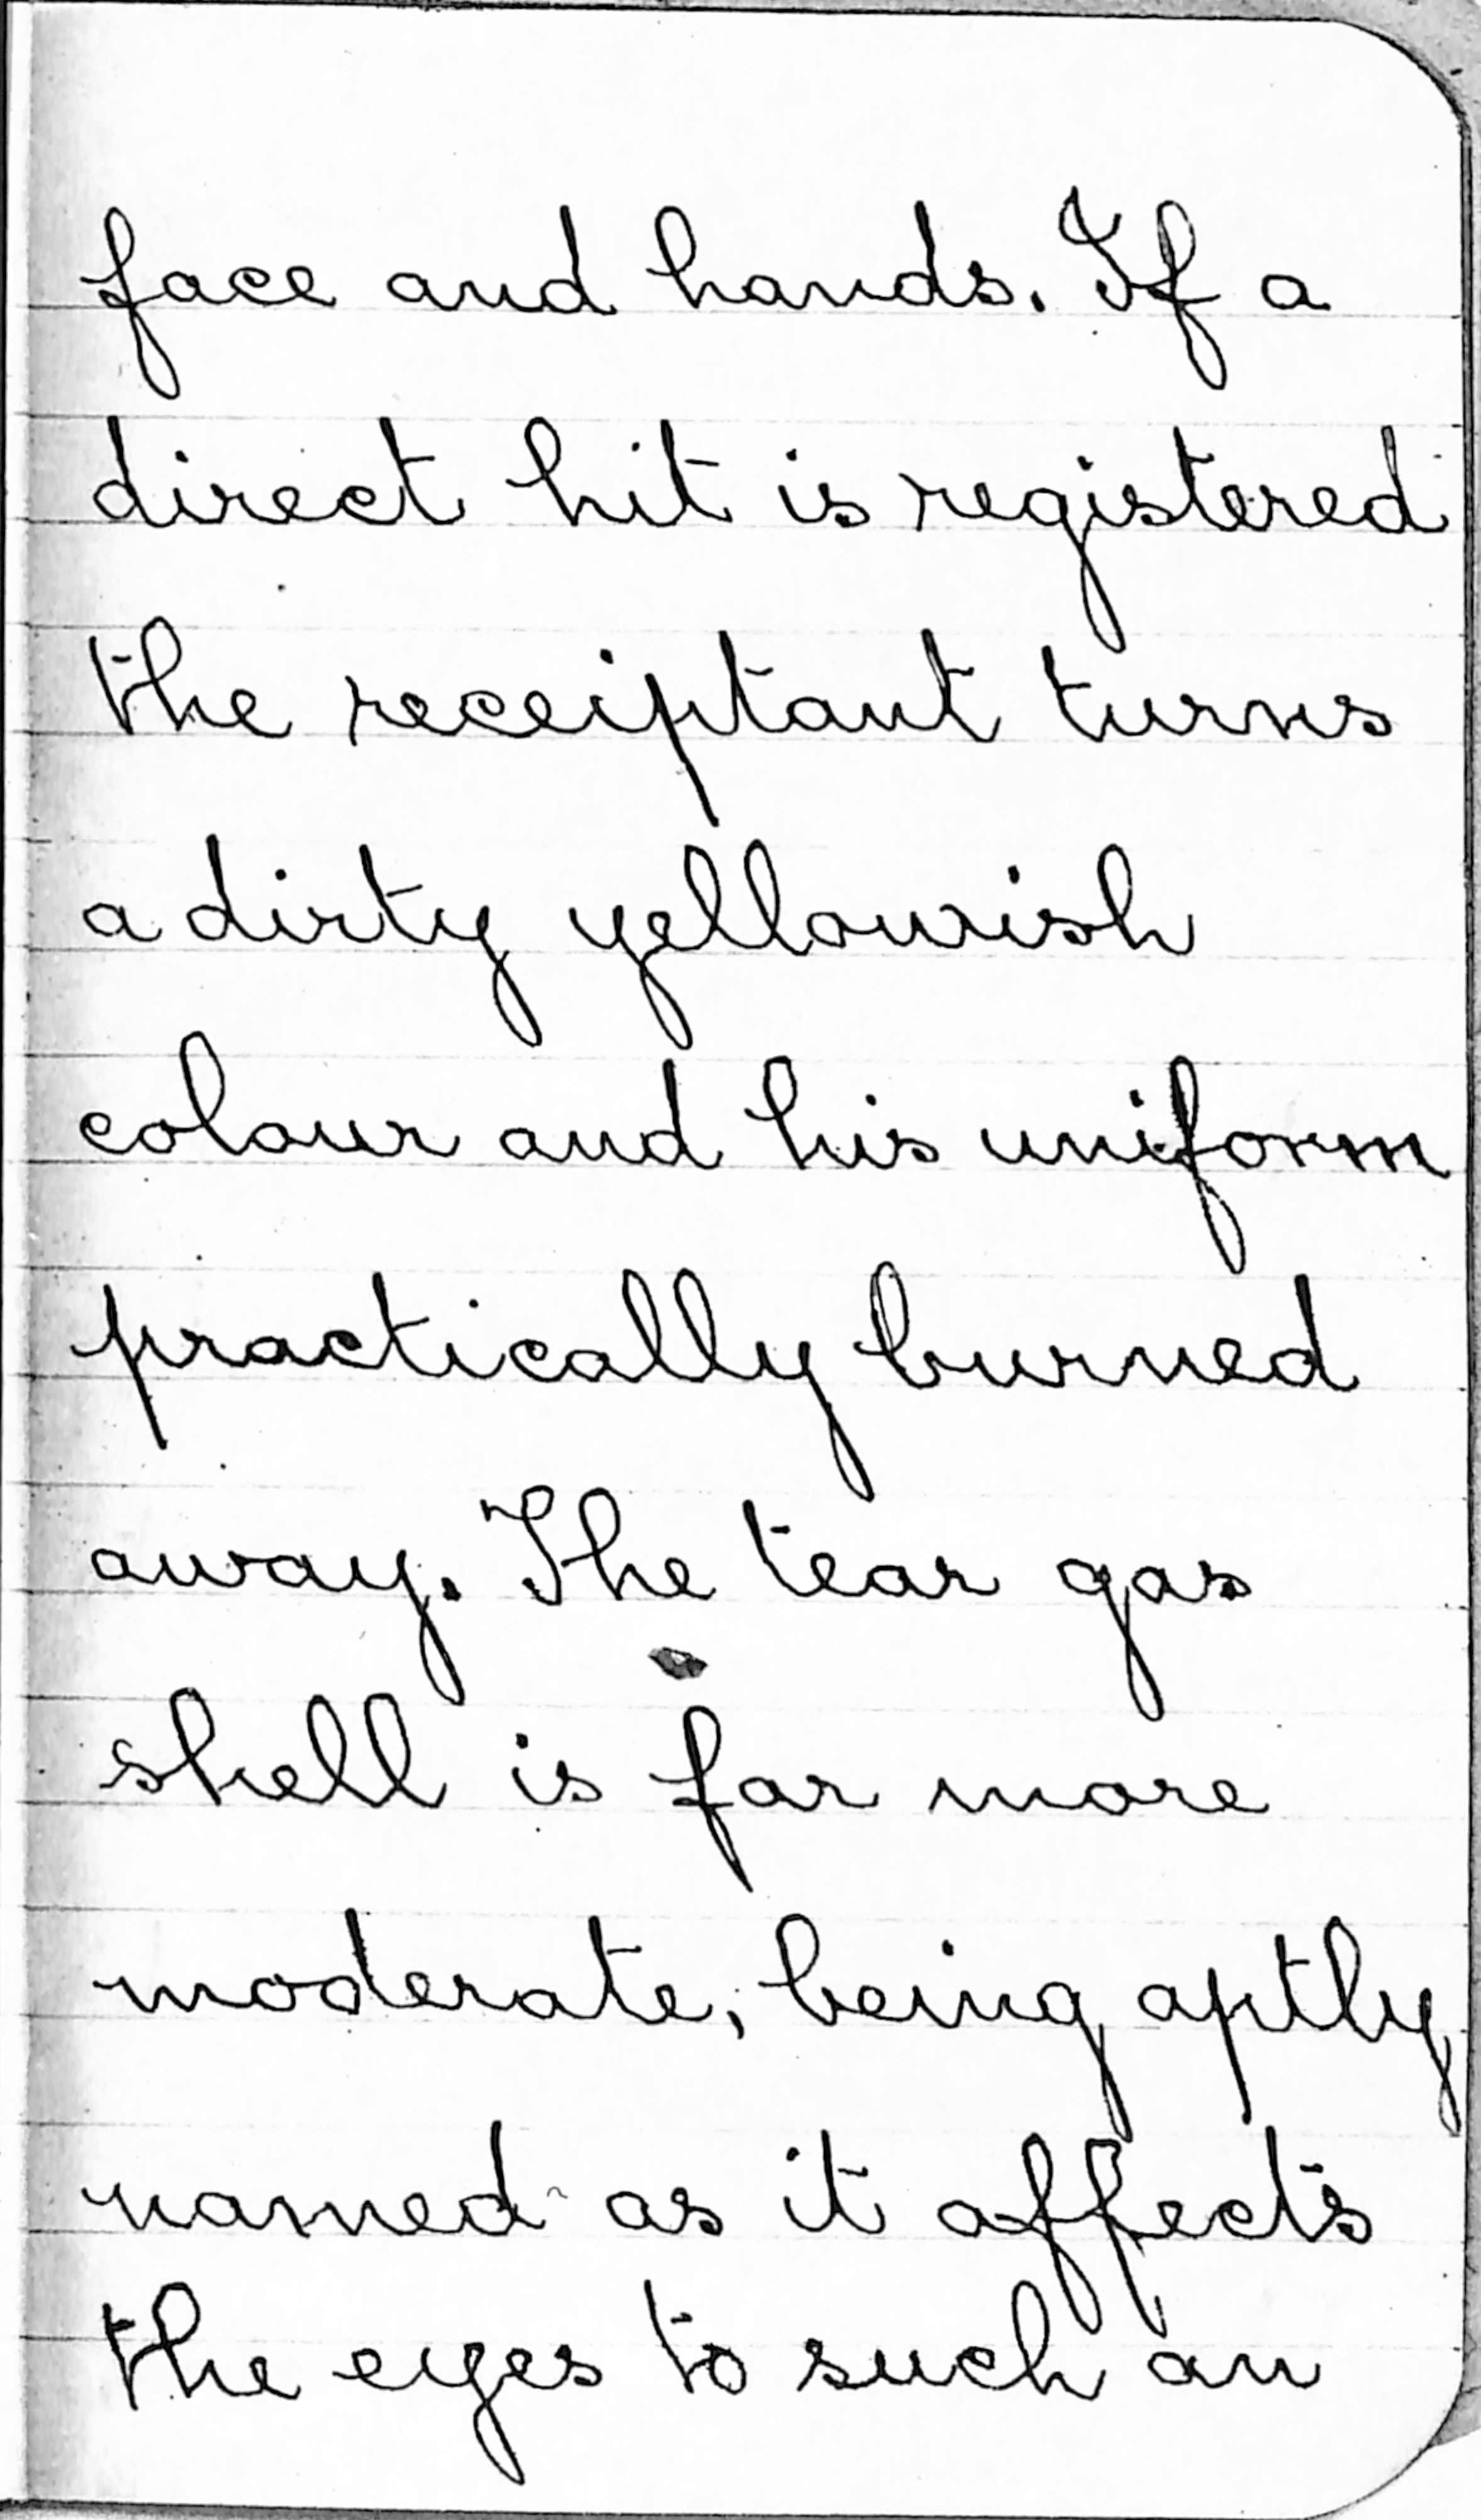 face and hands. If a
direct hit is registered
the receiptant turns
a dirty yellowish
colour and his uniform
practically burned
away. The tear gas
shell is far more
moderate, being aptly
named as it affects
the eyes to such an